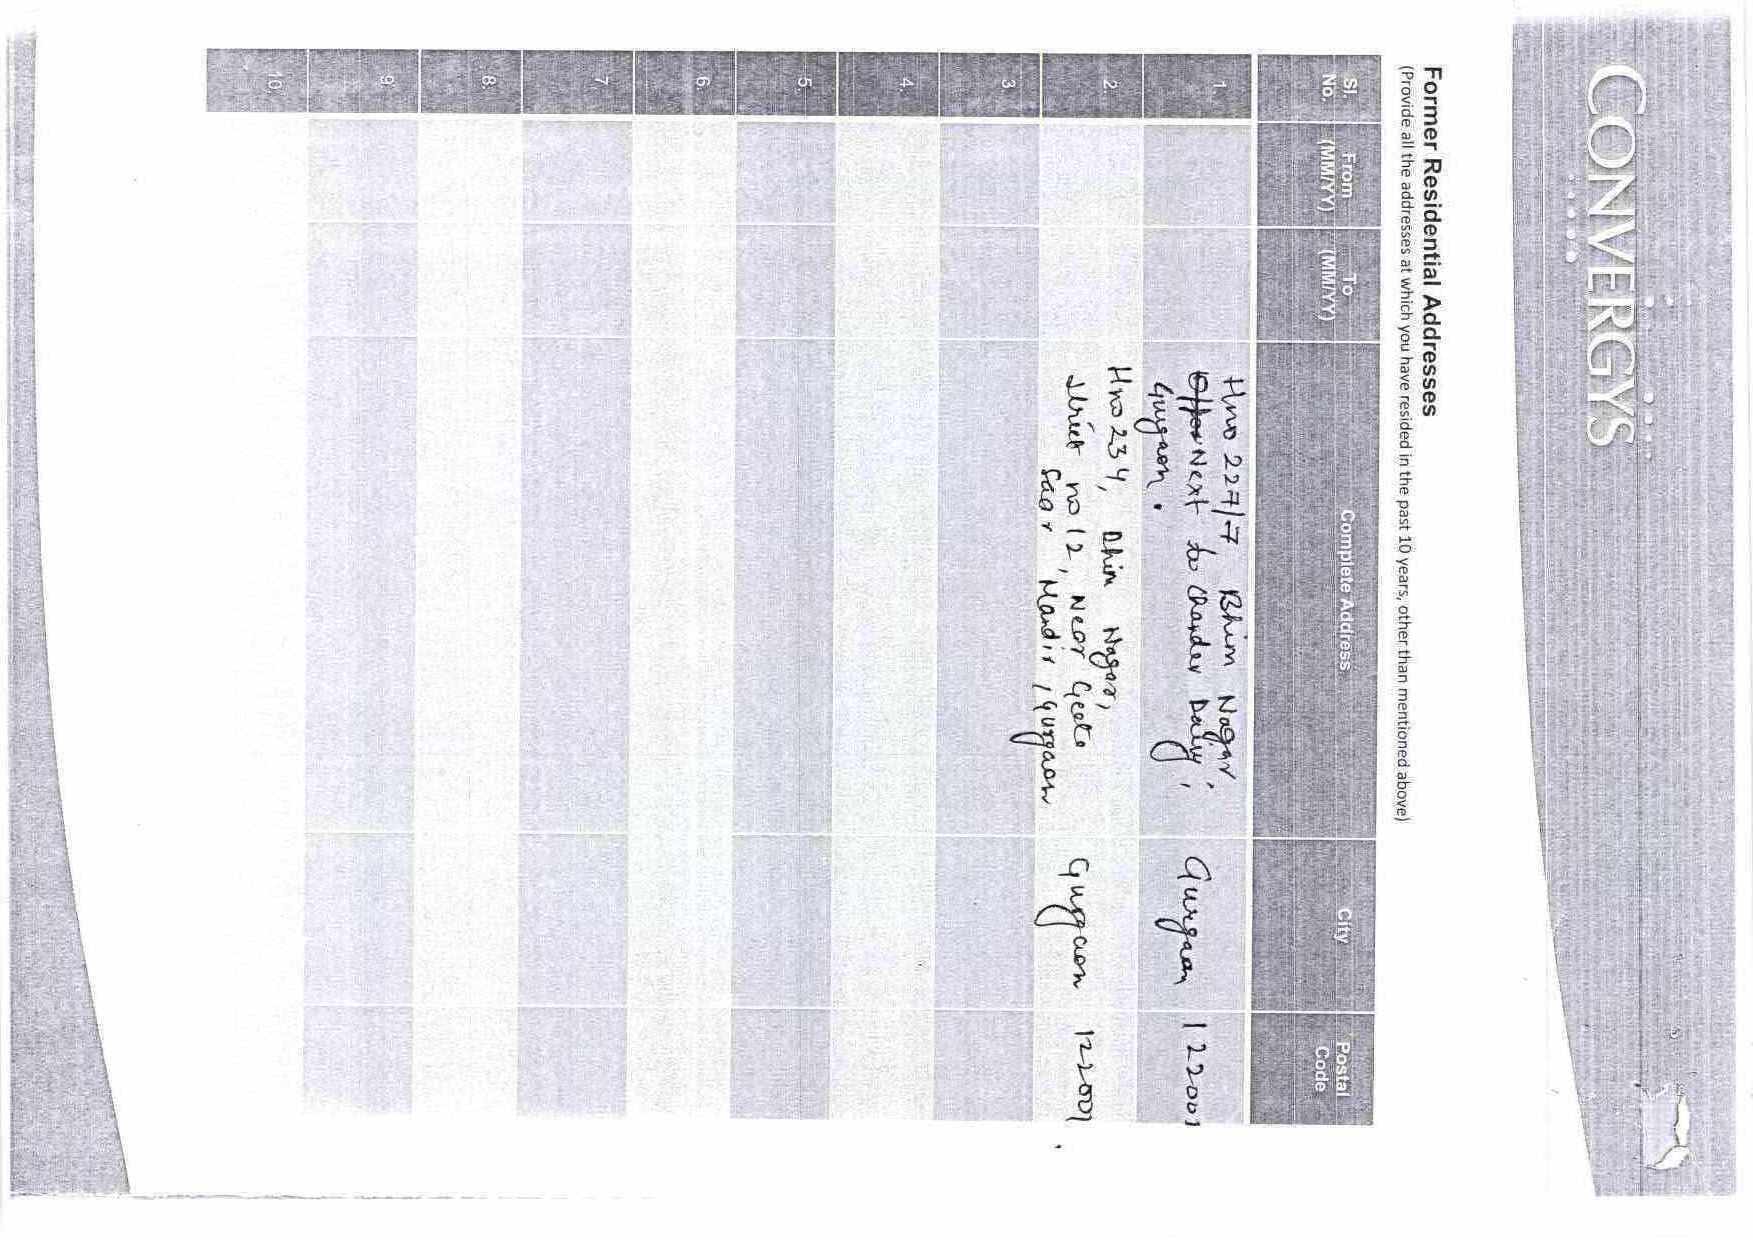 CONVERGYS
Former Residential Addresses
(Provide all the addresses at which you have resided in the past 10 years, other than mentioned above)
Sl. No. From (MM/YY) To (MM/YY) Complete Address City Postal Code
1. Hno 227/7, Bhim Nagar, Gurgaon 122001
Next to Chander Daiy,
Gurgaon.
2. Hno 234, Bhim Nagar, Gurgaon 122001
street no 12, Near Geeta
Sagr Mandir, Gurgaon
3.
4.
5.
6.
7.
8.
9.
10.